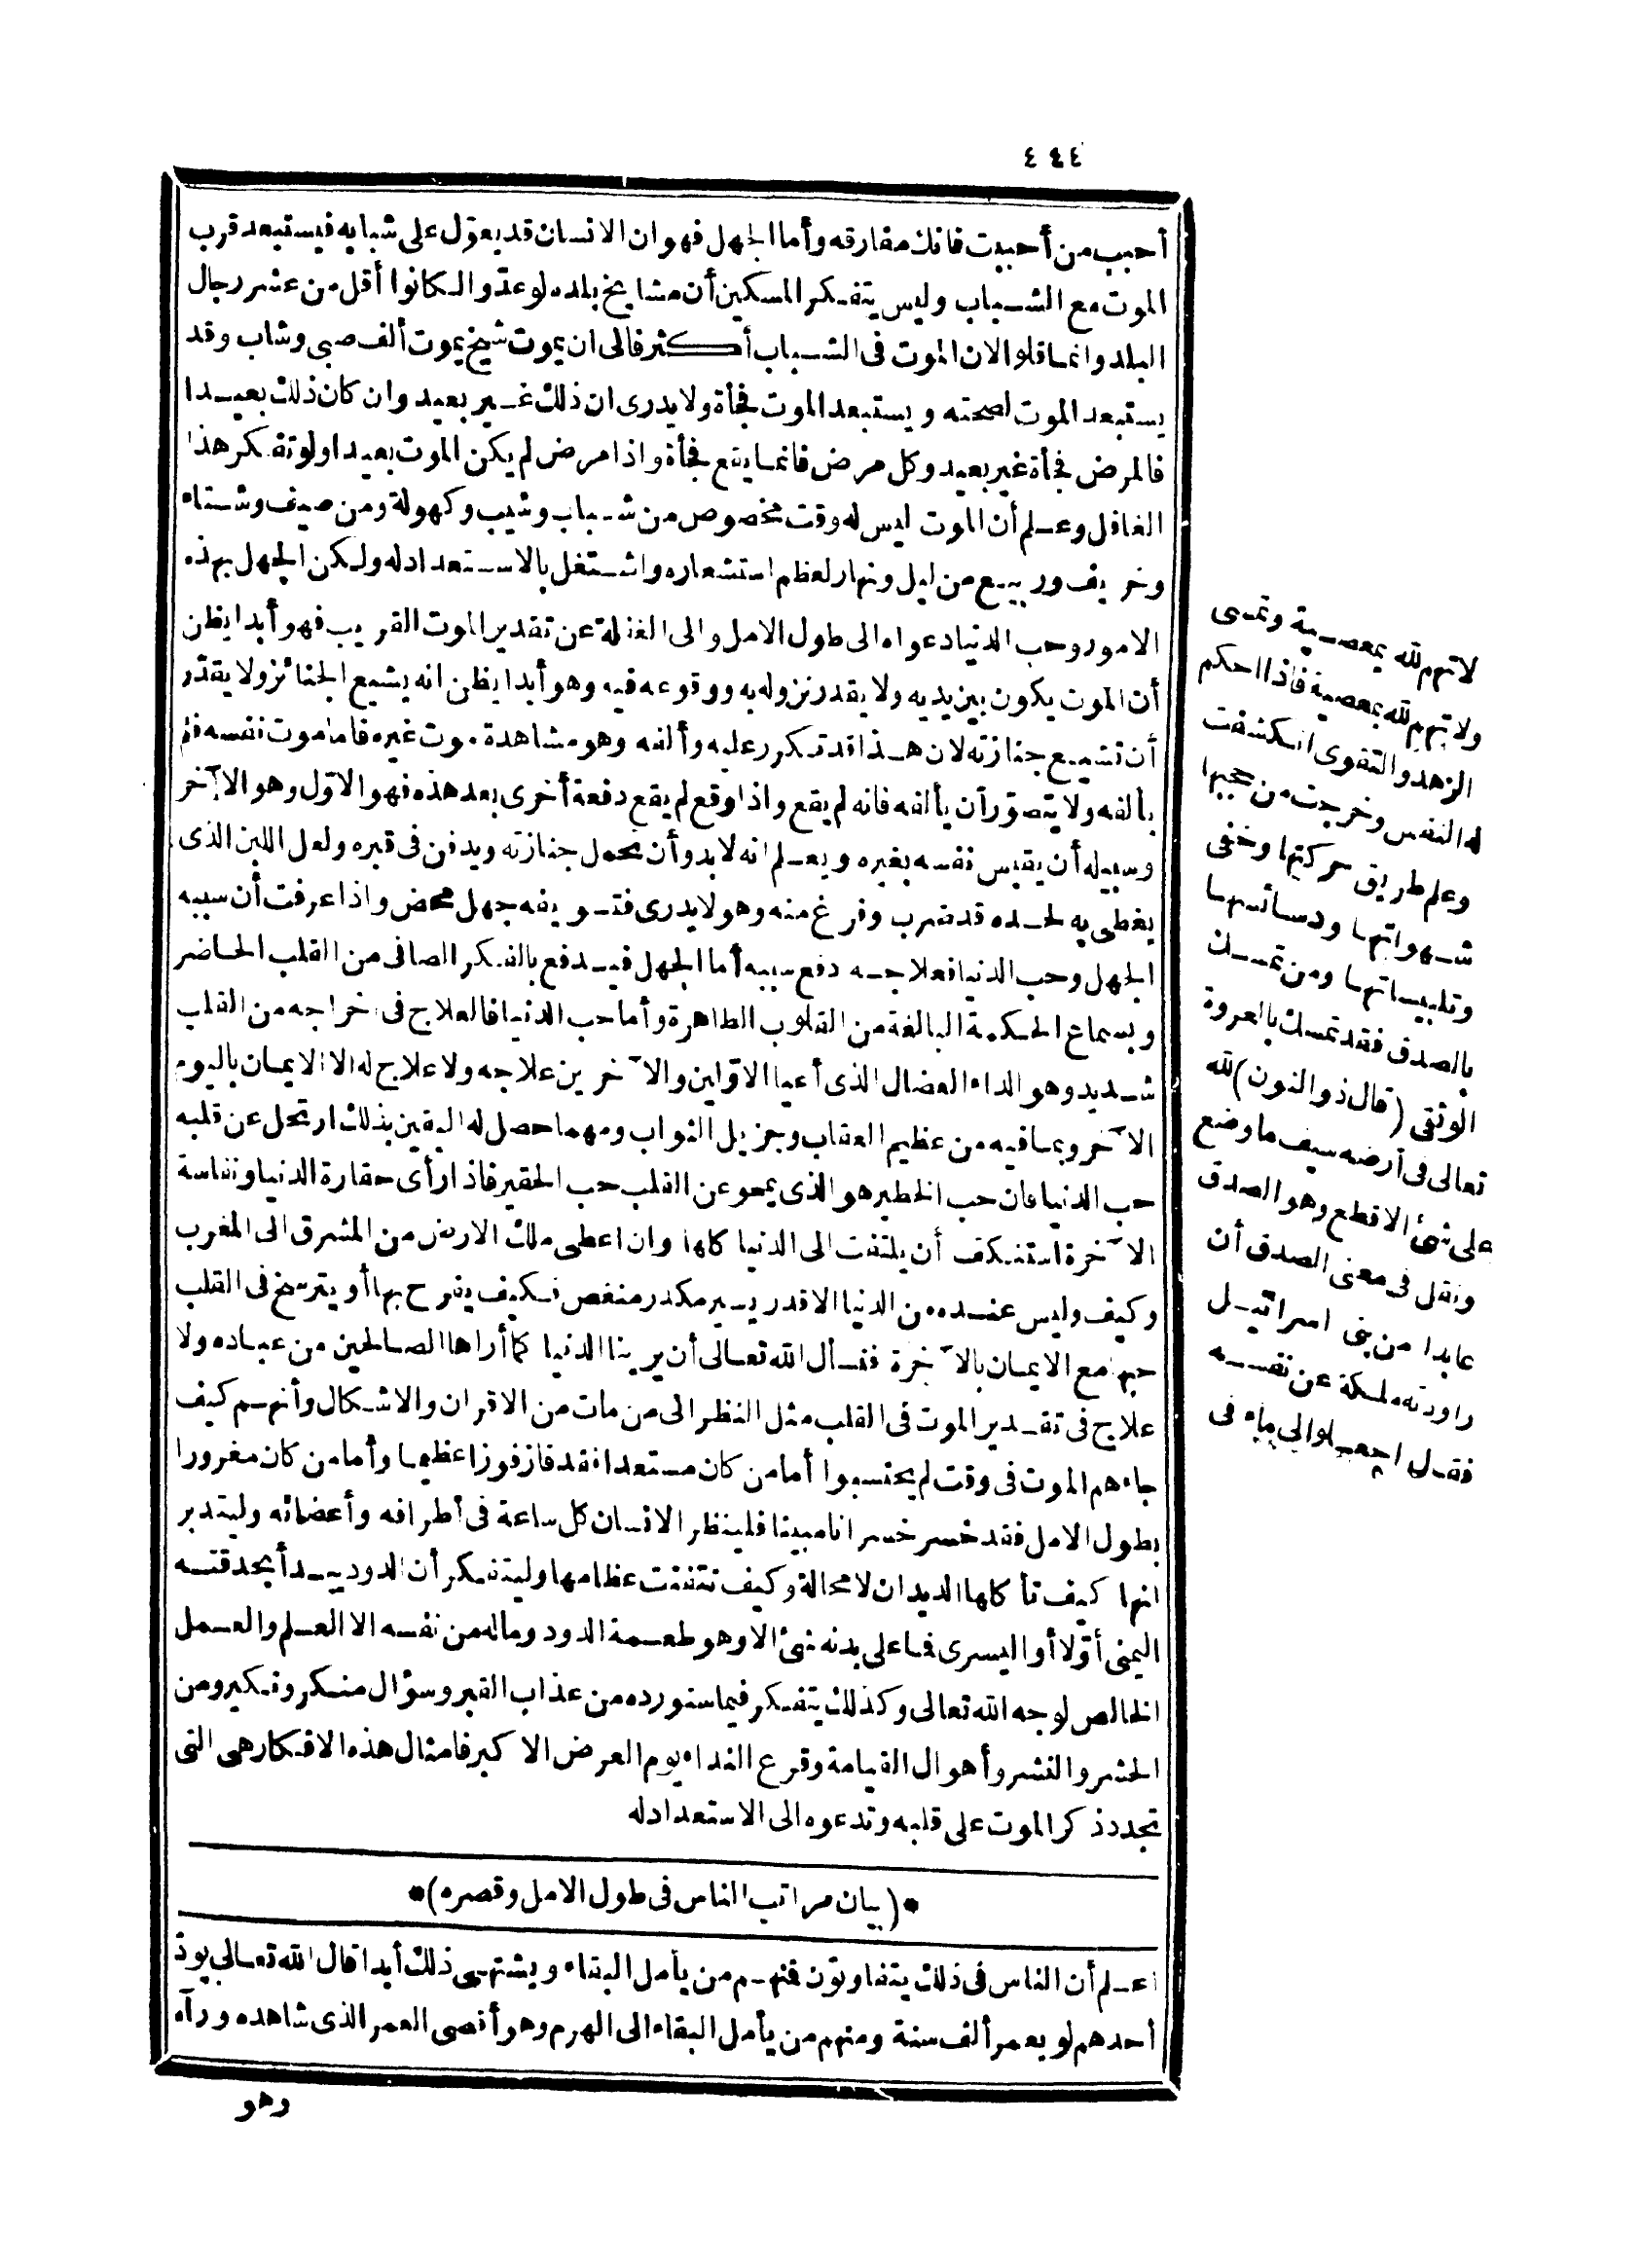 ٤٤٤
أحبب من أحببت فانك مفارقه وأما الجهل فهو ان الانسان قد يعوّل على شبابه فيستبعد قرب
الموت مع الشباب وليس يتفكر المسكين أن مشايخ بلده لو عدّوا لكانوا أقل من عشر رجال
البلد وانما قلوا لان الموت فى الشباب أكثر فالى ان يموت شيخ يموت ألف صبي وشاب وقد
يستبعد الموت لصحته ويستبعد الموت فجأة ولا يدرى ان ذلك غير بعيد وان كان ذلك بعيدا
فالمرض فجأة غير بعيد وكل مرض فانما يقع فجأة واذا مرض لم يكن الموت بعيدا ولو تفكر هذا
الغافل وعلم أن الموت ليس له وقت مخصوص من شباب وشيب وكهولة ومن صيف وشتاء
وخريف وربيع من ليل ونهار لعظم استشعاره واشتغل بالاستعداد له ولكن الجهل بهذه
الامور وحب الدنيا دعواه الى طول الامل والى الغفلة عن تقدير الموت القريب فهو أبدا يظن
أن الموت يكون بين يديه ولا يقدر نزوله به ووقوعه فيه وهو أبدا يظن انه يشيع الجنائز ولا يقدّر
أن تشيع جنازته لان هذا قد تكرر عليه وألفه وهو مشاهدة موت غيره فاما موت نفسه فلم
يألفه ولا يتصوّر أن يألفه فانه لم يقع واذا وقع لم يقع دفعة أخرى بعد هذه فهو الاوّل وهو الآخر
وسبيله أن يقيس نفسه بغيره ويعلم انه لا بد وأن تحمل جنازته ويدفن فى قبره ولعل اللبن الذى
يغطى به لحده قد ضرب وفرغ منه وهو لا يدرى فتسويفه جهل محض واذا عرفت أن سببه
الجهل وحب الدنيا فعلاجه دفع سببه أما الجهل فيدفع بالفكر الصافى من القلب الحاضر
وبسماع الحكمة البالغة من القلوب الطاهرة وأما حب الدنيا فالعلاج فى اخراجه من القلب
شديد وهو الداء العضال الذى أعيا الاوّلين والآخرين علاجه ولا علاج له الا الايمان باليوم
الآخر وبما فيه من عظيم العقاب وجزيل الثواب ومهما حصل له اليقين بذلك ارتحل عن قلبه
حب الدنيا فان حب الخطير هو الذى يمحو عن القلب حب الحقير فاذا رأى حقارة الدنيا ونفاسة
الآخرة استنكف أن يلتفت الى الدنيا كلها وان اعطى ملك الارض من المشرق الى المغرب
وكيف وليس عنده من الدنيا الا قدر يسير مكدر منغص فكيف يفرح بها أو يترسخ فى القلب
حبها مع الايمان بالآخرة فنسأل الله تعالى أن يرينا الدنيا كما أراها الصالحين من عباده ولا
علاج فى تقدير الموت فى القلب مثل النظر الى من مات من الاقران والاشكال وأنهم كيف
جاءهم الموت فى وقت لم يحتسبوا أما من كان مستعدا فقد فاز فوزا عظيما وأما من كان مغرورا
بطول الامل فقد خسر خسرانا مبينا فلينظر الانسان كل ساعة فى أطرافه وأعضائه وليتدبر
انها كيف تأكلها الديدان لا محالة وكيف تتفتت عظامها وليتفكر أن الدود يبدأ بحدقته
اليمنى أوّلا أو اليسرى فما على بدنه شئ الا وهو طعمة الدود وماله من نفسه الا العلم والعمل
الخالص لوجه الله تعالى وكذلك يتفكر فيما سنورده من عذاب القبر وسؤال منكر ونكير ومن
الحشر والنشر وأهوال القيامة وقرع النداء يوم العرض الاكبر فامثال هذه الافكار هى التى
تجدد ذكر الموت على قلبه وتدعوه الى الاستعداد له
*(بيان مراتب الناس فى طول الامل وقصره)*
اعلم أن الناس فى ذلك يتفاوتون فمنهم من يأمل البقاء ويشتهى ذلك أبدا قال الله تعالى يودّ
أحدهم لو يعمر ألف سنة ومنهم من يأمل البقاء الى الهرم وهو أقصى العمر الذى شاهده ورآه
وهو
لاتهم لله بمعصية وتمسى
ولا تهم لله بمعصية فاذا احكم
الزهد والتقوى انكشفت
له النفس وخرجت من حجبها
وعلم طريق حركتها وخفى
شهواتها ودسائسها
وتلبيساتها ومن تمسك
بالصدق فقد تمسك بالعروة
الوثقى (قال ذو النون) لله
تعالى فى أرضه سيف ما وضع
على شئ الا قطع وهو الصدق
ونقل فى معنى الصدق أن
عابدا من بنى اسرائيل
راودته ملكة عن نفسه
فقال اجعلوا لى ماء فى